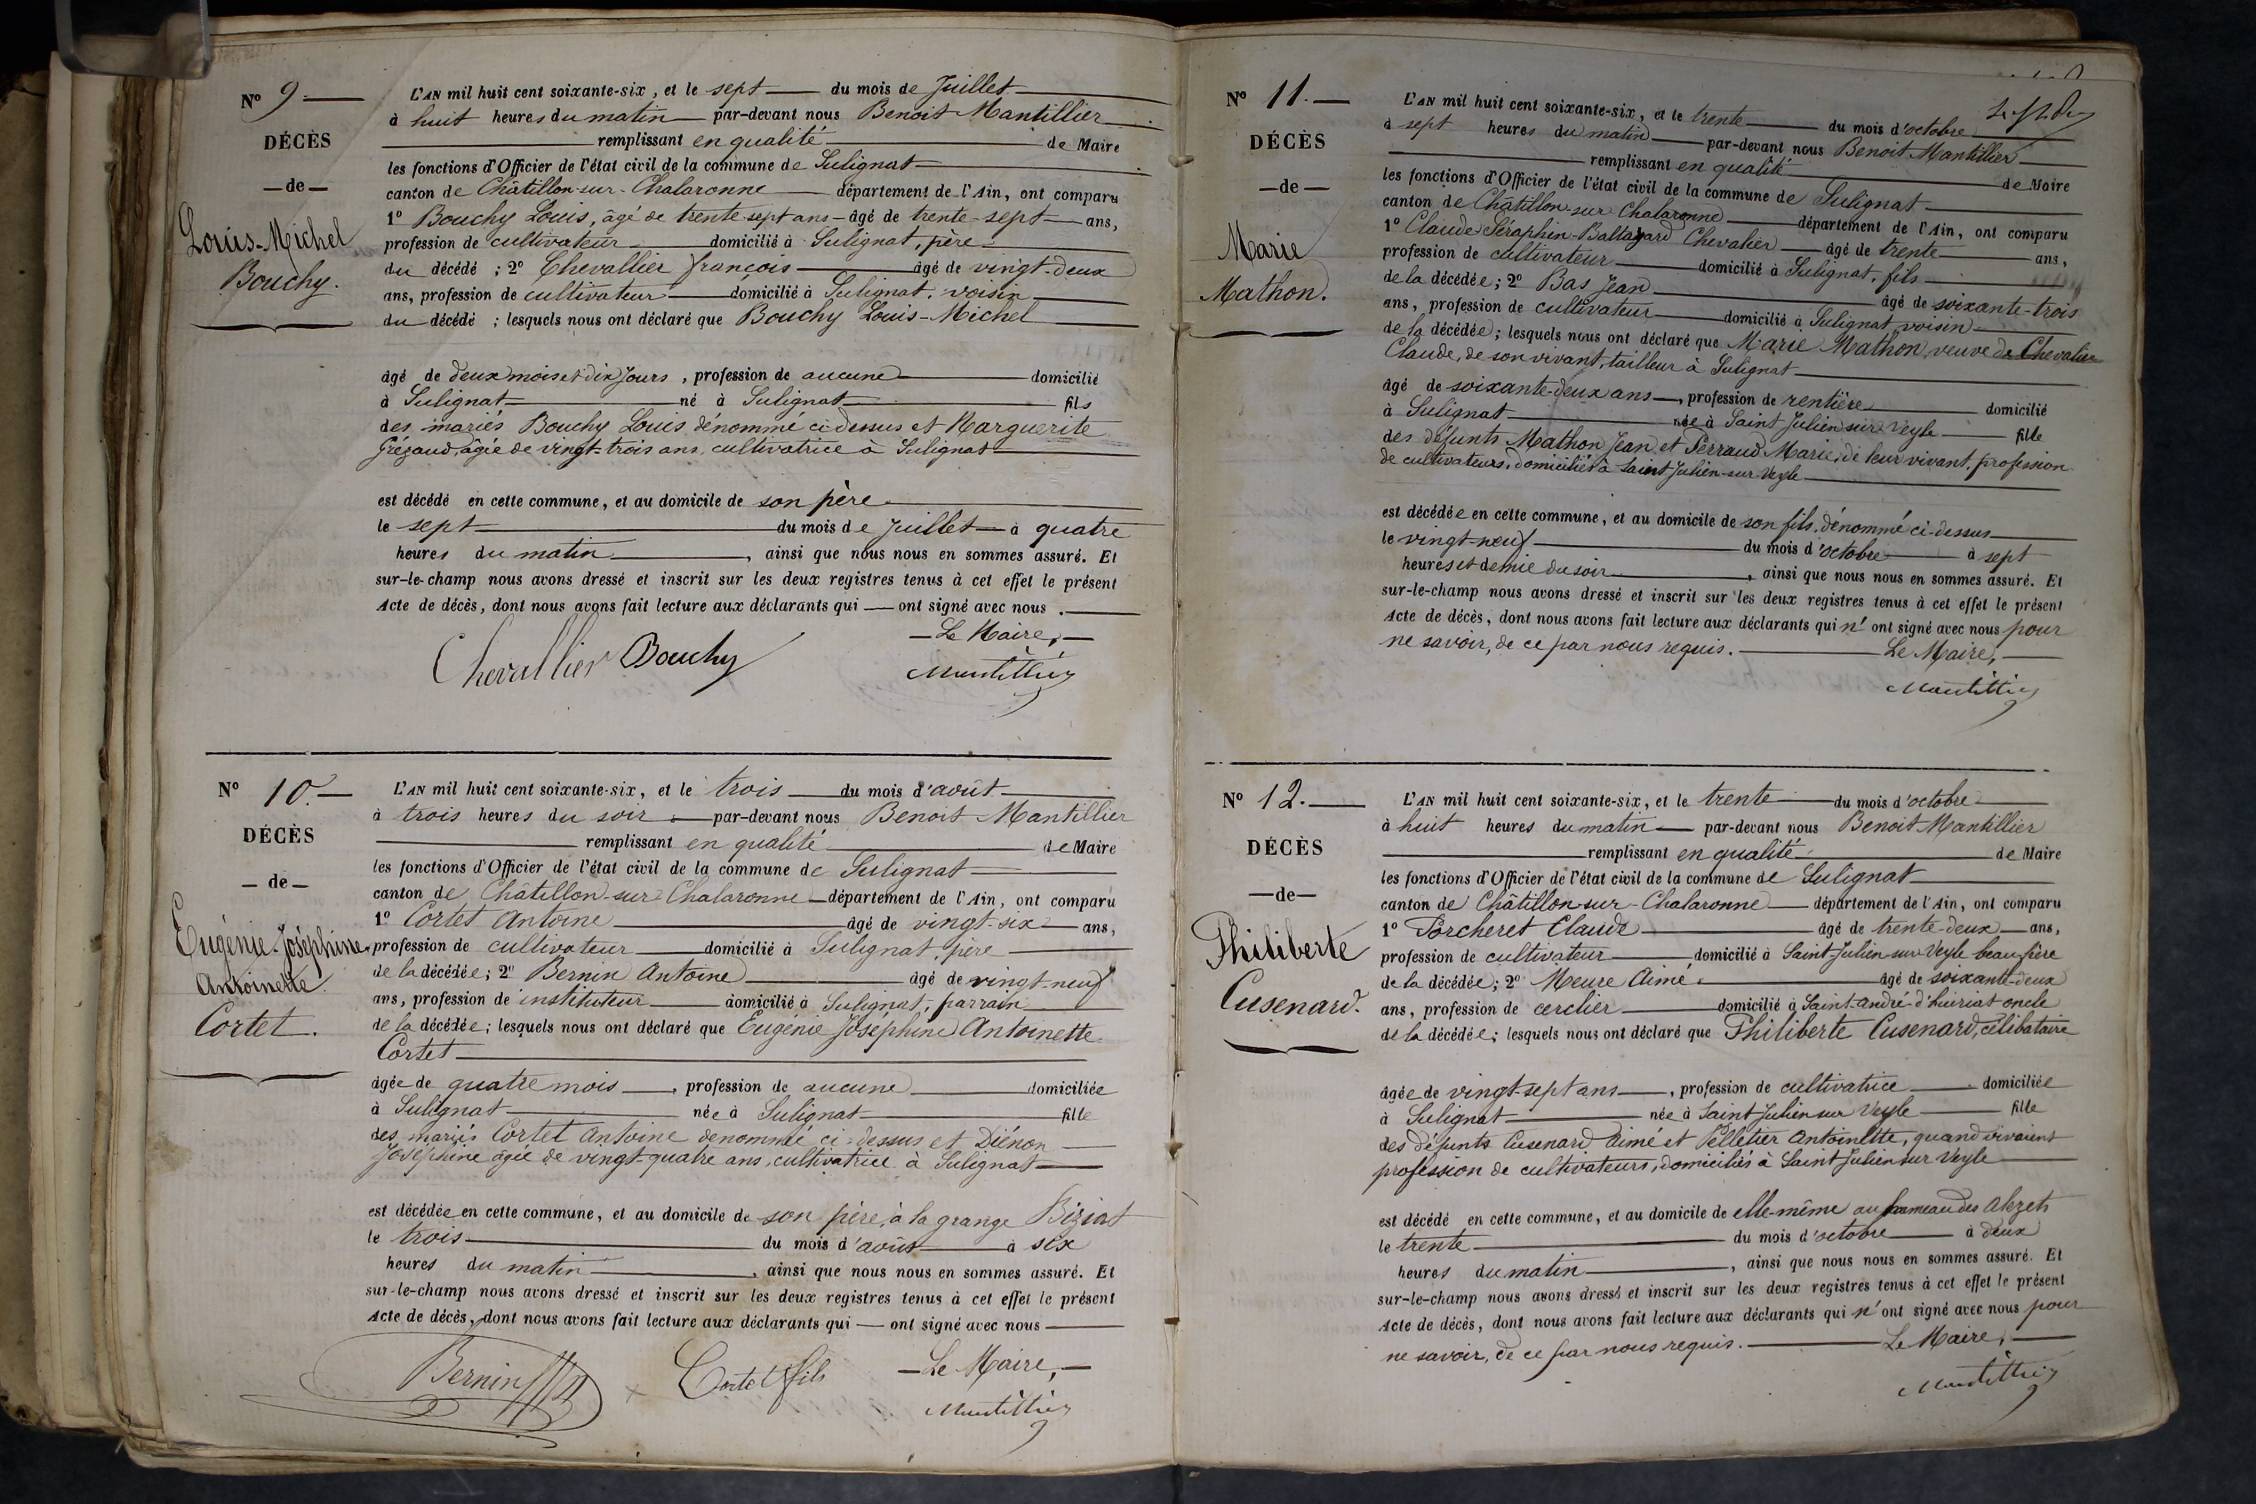 Nº 9.
DÉCÈS
— de —
Louis-Michel
Bouchy.
L'AN mil huit cent soixante-six, et le sept du mois de Juillet
à huit heures du matin par-devant nous Benoit Mantillier
remplissant en qualité de Maire
les fonctions d'Officier de l'état civil de la commune de Sulignat
canton de Châtillon-sur-Chalaronne département de l'Ain, ont comparu
1º Bouchy Louis, âgé de trente sept ans – âgé de trente-sept ans,
profession de cultivateur domicilié à Sulignat, père
du décédé ; 2º Chevallier françois âgé de vingt-deux
ans, profession de cultivateur domicilié à Sulignat, voisin
du décédé ; lesquels nous ont déclaré que Bouchy Louis-Michel
âgé de deux mois et dix jours, profession de aucune domicilié
à Sulignat né à Sulignat fils
des mariés Bouchy Louis, dénommé ci-dessus et Marguerite
Grézaud, âgée de vingt-trois ans, cultivatrice à Sulignat
est décédé en cette commune, et au domicile de son père
le sept du mois de Juillet à quatre
heures du matin, ainsi que nous nous en sommes assuré. Et
sur-le-champ nous avons dressé et inscrit sur les deux registres tenus à cet effet le présent
Acte de décès, dont nous avons fait lecture aux déclarants qui — ont signé avec nous.
— Le Maire, —
Chevallier Bouchy Mantillier
Nº 10.
DÉCÈS
— de —
Eugénie-Joséphine
Antoinette
Cortet.
L'AN mil huit cent soixante-six, et le trois du mois d'août
à trois heures du soir par-devant nous Benoit Mantillier
remplissant en qualité de Maire
les fonctions d'Officier de l'état civil de la commune de Sulignat
canton de Châtillon-sur-Chalaronne département de l'Ain, ont comparu
1º Cortet Antoine âgé de vingt-six ans,
profession de cultivateur domicilié à Sulignat, père
de la décédée; 2º Bernin Antoine âgé de vingt-neuf
ans, profession de instituteur domicilié à Sulignat, parrain
de la décédée; lesquels nous ont déclaré que Eugénie Joséphine Antoinette
Cortet
âgée de quatre mois, profession de aucune domiciliée
à Sulignat née à Sulignat fille
des mariés Cortet Antoine dénommé ci-dessus et Diénon
Joséphine âgée de vingt-quatre ans, cultivatrice à Sulignat
est décédée en cette commune, et au domicile de son père, à la grange Biziat
le trois du mois d'août à six
heures du matin, ainsi que nous nous en sommes assuré. Et
sur-le-champ nous avons dressé et inscrit sur les deux registres tenus à cet effet le présent
Acte de décès, dont nous avons fait lecture aux déclarants qui — ont signé avec nous
Bernin Cortet fils — Le Maire, —
Mantillier
Nº 11.
DÉCÈS
— de —
Marie
Mathon.
L'AN mil huit cent soixante-six, et le trente du mois d'octobre
à sept heures du matin par-devant nous Benoit Mantillier
remplissant en qualité de Maire
les fonctions d'Officier de l'état civil de la commune de Sulignat
canton de Châtillon-sur Chalaronne département de l'Ain, ont comparu
1º Claude Séraphin-Baltazard Chevalier âgé de trente ans,
profession de cultivateur domicilié à Sulignat, fils
de la décédée; 2º Bas Jean âgé de soixante-trois
ans, profession de cultivateur domicilié à Sulignat voisin
de la décédée; lesquels nous ont déclaré que Marie Mathon, veuve de Chevalier
Claude, de son vivant, tailleur à Sulignat
âgé de soixante-deux ans, profession de rentière domicilié
à Sulignat née à Saint Julien sur Veyle fille
des défunts Mathon Jean et Perraud Marie, de leur vivant, profession
de cultivateurs, domiciliés à Saint-Julien-sur-Veyle
est décédée en cette commune, et au domicile de son fils, dénommé ci-dessus
le vingt-neuf du mois d'octobre à sept
heures et demie du soir, ainsi que nous nous en sommes assuré. Et
sur-le-champ nous avons dressé et inscrit sur les deux registres tenus à cet effet le présent
Acte de décès, dont nous avons fait lecture aux déclarants qui n'ont signé avec nous pour
ne savoir, de ce par nous requis. Le Maire,
Mantillier
Nº 12.
DÉCÈS
— de —
Philiberte
Cusenard.
L'AN mil huit cent soixante-six, et le trente du mois d'octobre
à huit heures du matin par-devant nous Benoit Mantillier
remplissant en qualité de Maire
les fonctions d'Officier de l'état civil de la commune de Sulignat
canton de Châtillon-sur-Chalaronne département de l'Ain, ont comparu
1º Porcheret Claude âgé de trente-deux ans,
profession de cultivateur domicilié à Saint-Julien-sur Veyle beau frère
de la décédée; 2º Meure Aimé âgé de soixante-deux
ans, profession de cerclier domicilié à Saint-André-d'huiriat oncle
de la décédée; lesquels nous ont déclaré que Philiberte Cusenard, célibataire
âgée de vingt-sept ans, profession de cultivatrice domiciliée
à Sulignat née à Saint Julien sur Veyle fille
des défunts Cusenard Aimé et Pelletier Antoinette, quand vivaient
profession de cultivateurs, domiciliés à Saint Julien sur Veyle
est décédé en cette commune, et au domicile de elle-même au hameau des
le trente du mois d'octobre à deux
heures du matin, ainsi que nous nous en sommes assuré. Et
sur-le-champ nous avons dressé et inscrit sur les deux registres tenus à cet effet le présent
Acte de décès, dont nous avons fait lecture aux déclarants qui n'ont signé avec nous pour
ne savoir, de ce par nous requis. Le Maire,
Mantillier